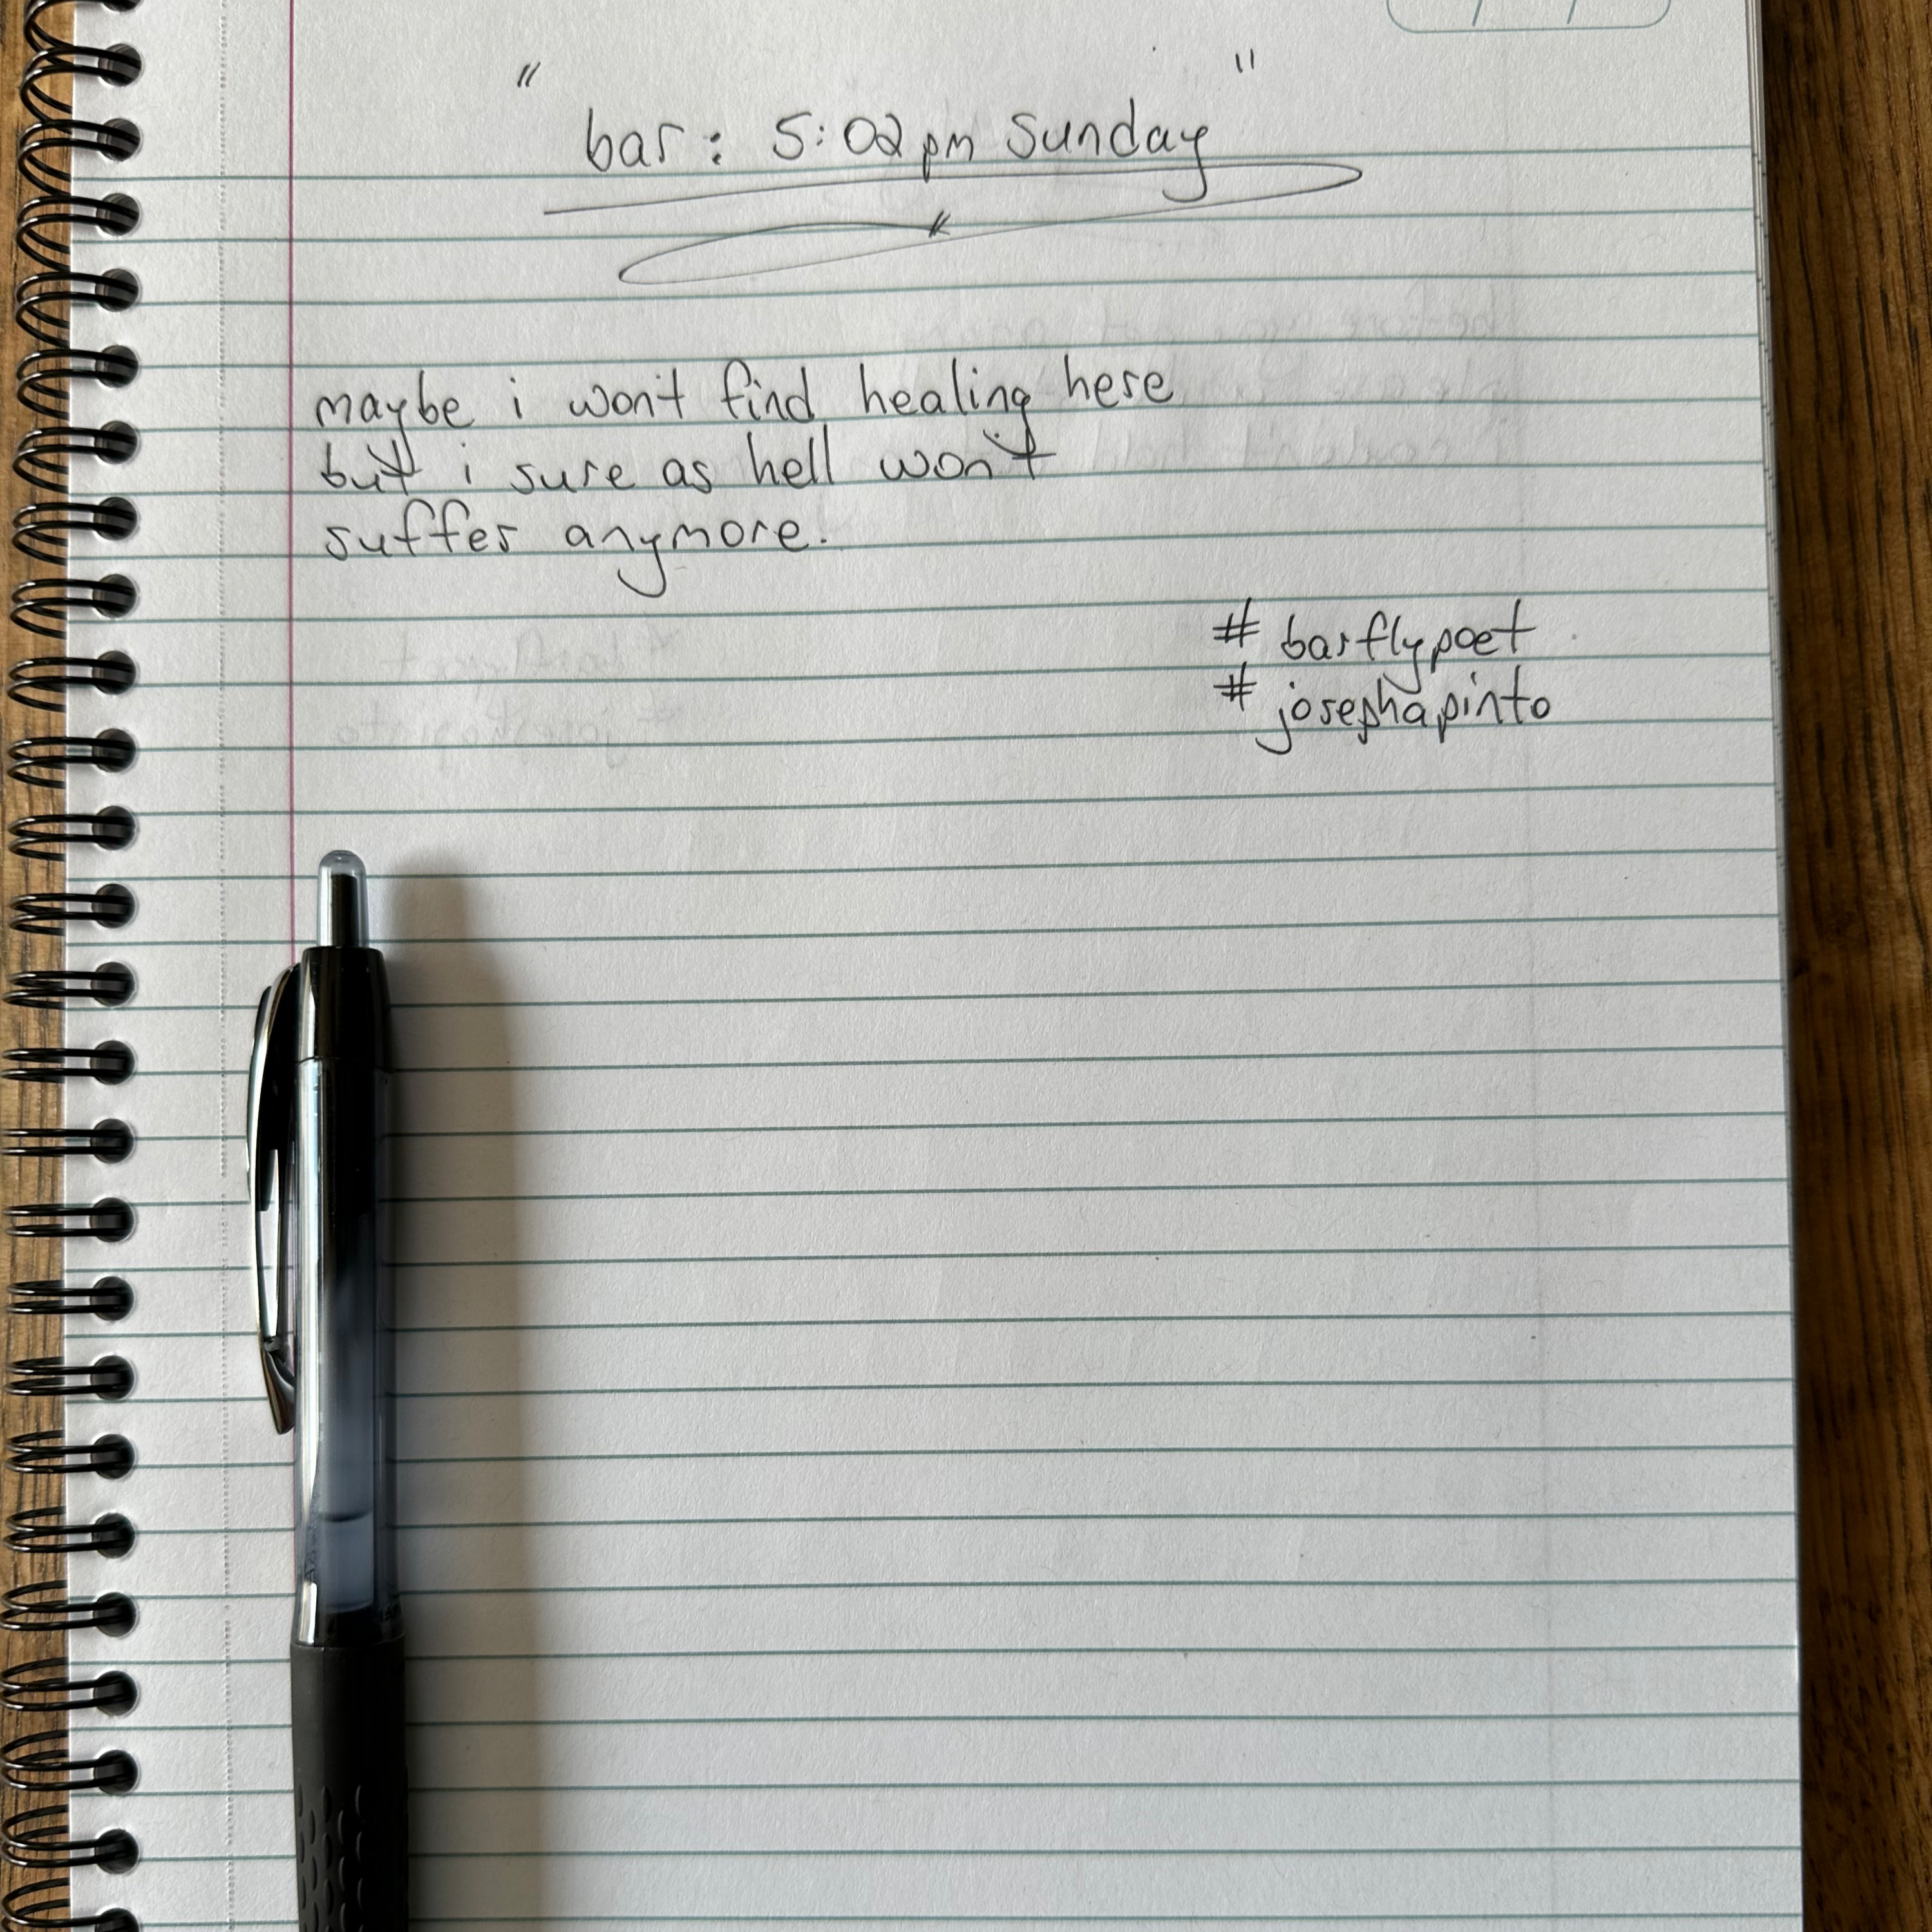 " bar: 5:02pm Sunday "
maybe i won't find healing here
but i sure as hell won't
suffer anymore.
# barflypoet
# josephapinto